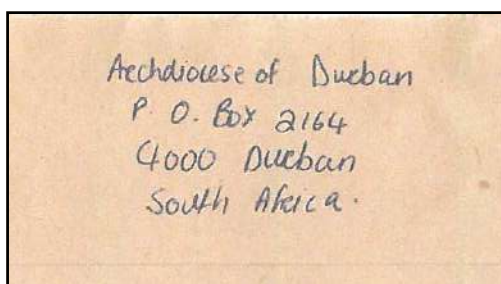 Archdiocese of Durban
P. O. Box 2164
4000 Durban
South Africa.